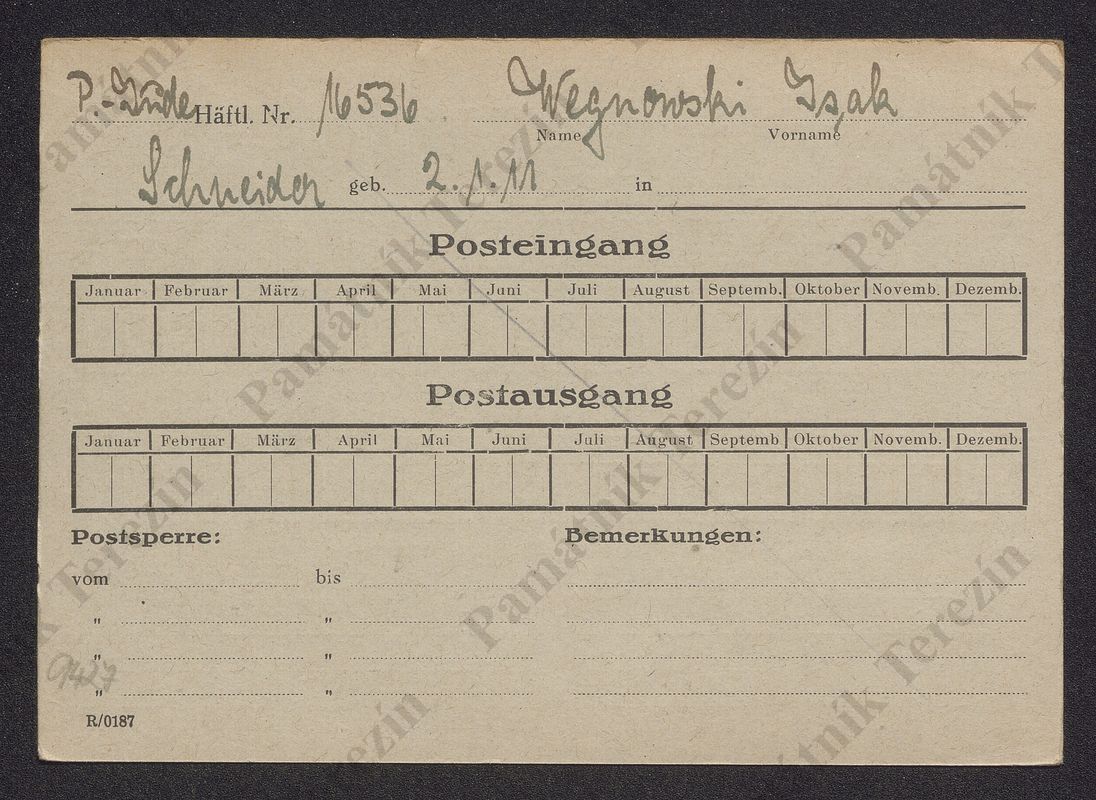 P.-Jude Häftl. Nr. 16536 Wegnowski Isak
Name Vorname
Schneider geb. 2.1.11 in
Posteingang
Januar Februar März April Mai Juni Juli August Septemb. Oktober Novemb. Dezemb.
Postausgang
Januar Februar März April Mai Juni Juli August Septemb Oktober Novemb. Dezemb.
Postsperre: Bemerkungen:
vom bis
" "
" "
" "
R/0187
Památník Terezín